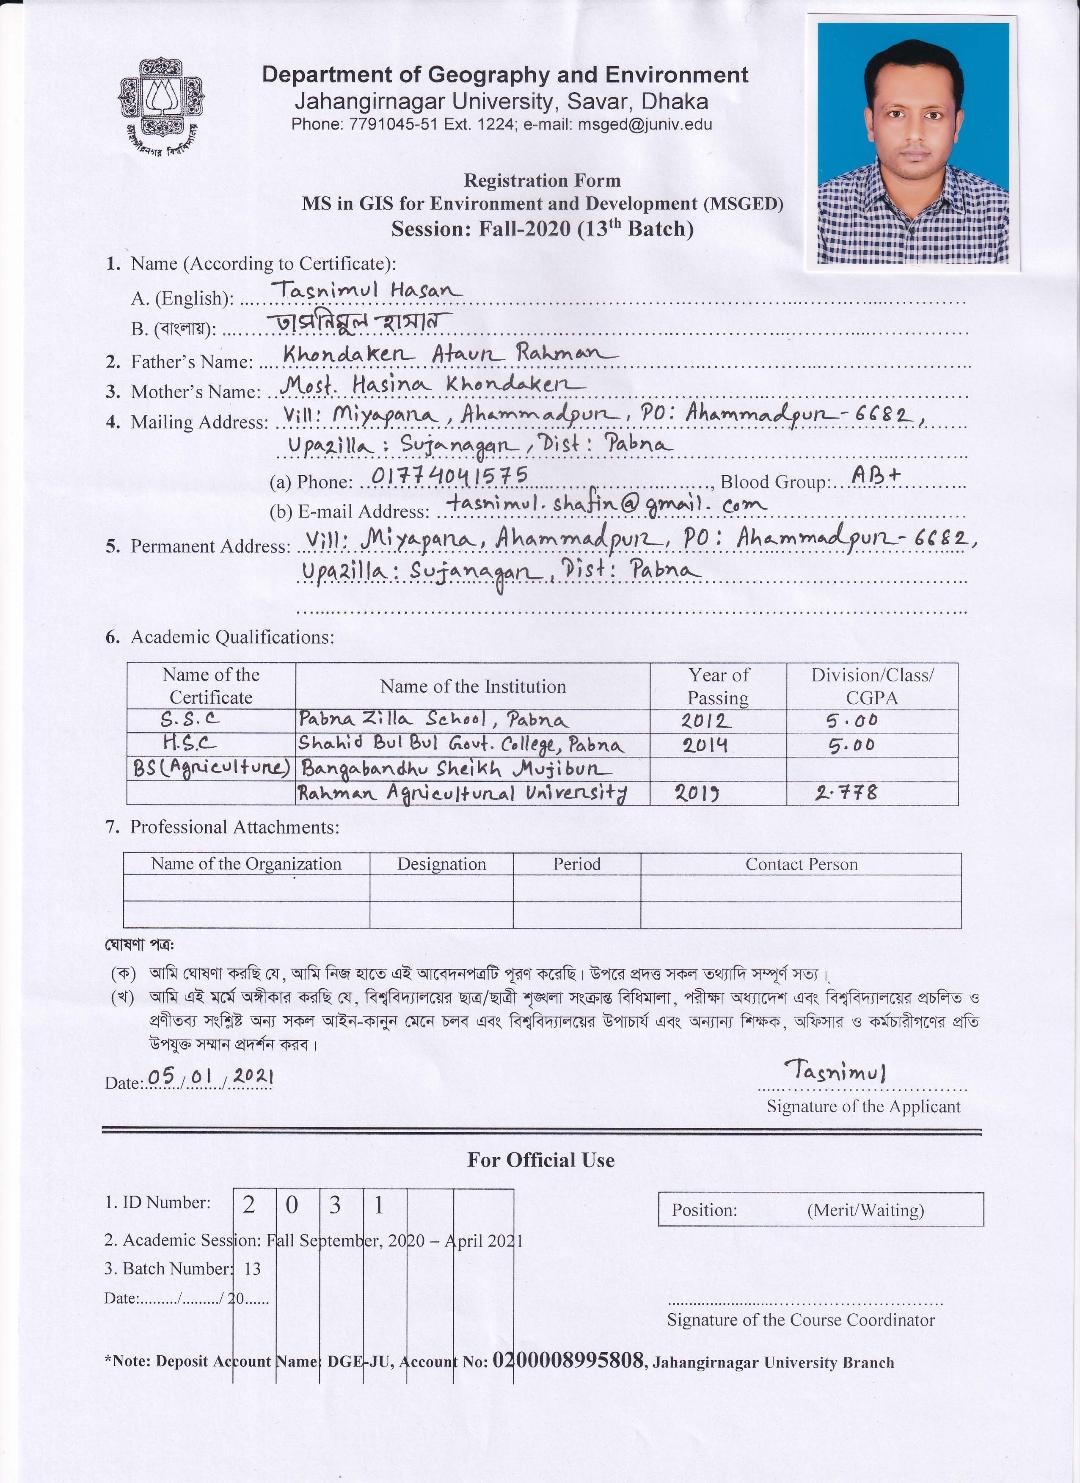 Department of Geography and Environment
Jahangirnagar University, Savar, Dhaka
Phone: 7791045-51 Ext. 1224; e-mail: msged@juniv.edu
জাহাঙ্গীরনগর বিশ্ববিদ্যালয়
Registration Form
MS in GIS for Environment and Development (MSGED)
Session: Fall-2020 (13th Batch)
1. Name (According to Certificate):
A. (English): Tasnimul Hasan
B. (বাংলায়): তাসনিমুল হাসান
2. Father's Name: Khondaker Ataur Rahman
3. Mother's Name: Most. Hasina Khondaker
4. Mailing Address: Vill: Miyapara, Ahammadpur, PO: Ahammadpur-6682,
Upazilla: Sujanagar, Dist: Pabna
(a) Phone: 01774041575, Blood Group: AB+
(b) E-mail Address: tasnimul.shafin@gmail.com
5. Permanent Address: Vill: Miyapara, Ahammadpur, PO: Ahammadpur-6682,
Upazilla: Sujanagar, Dist: Pabna
6. Academic Qualifications:
Name of the Certificate Name of the Institution Year of Passing Division/Class/CGPA
S.S.C Pabna Zilla School, Pabna 2012 5.00
H.S.C Shahid Bul Bul Govt. College, Pabna 2014 5.00
BS(Agriculture) Bangabandhu Sheikh Mujibur
Rahman Agricultural University 2019 2.778
7. Professional Attachments:
Name of the Organization Designation Period Contact Person
ঘোষণা পত্র:
(ক) আমি ঘোষণা করছি যে, আমি নিজ হাতে এই আবেদনপত্রটি পূরণ করেছি। উপরে প্রদত্ত সকল তথ্যাদি সম্পূর্ণ সত্য।
(খ) আমি এই মর্মে অঙ্গীকার করছি যে, বিশ্ববিদ্যালয়ের ছাত্র/ছাত্রী শৃঙ্খলা সংক্রান্ত বিধিমালা, পরীক্ষা অধ্যাদেশ এবং বিশ্ববিদ্যালয়ের প্রচলিত ও
প্রণীতব্য সংশ্লিষ্ট অন্য সকল আইন-কানুন মেনে চলব এবং বিশ্ববিদ্যালয়ের উপাচার্য এবং অন্যান্য শিক্ষক, অফিসার ও কর্মচারীগণের প্রতি
উপযুক্ত সম্মান প্রদর্শন করব।
Date: 05/01/2021 Tasnimul
Signature of the Applicant
For Official Use
1. ID Number: 2 0 3 1 Position: (Merit/Waiting)
2. Academic Session: Fall September, 2020 – April 2021
3. Batch Number: 13
Date:........./........./ 20......
Signature of the Course Coordinator
*Note: Deposit Account Name: DGE-JU, Account No: 0200008995808, Jahangirnagar University Branch